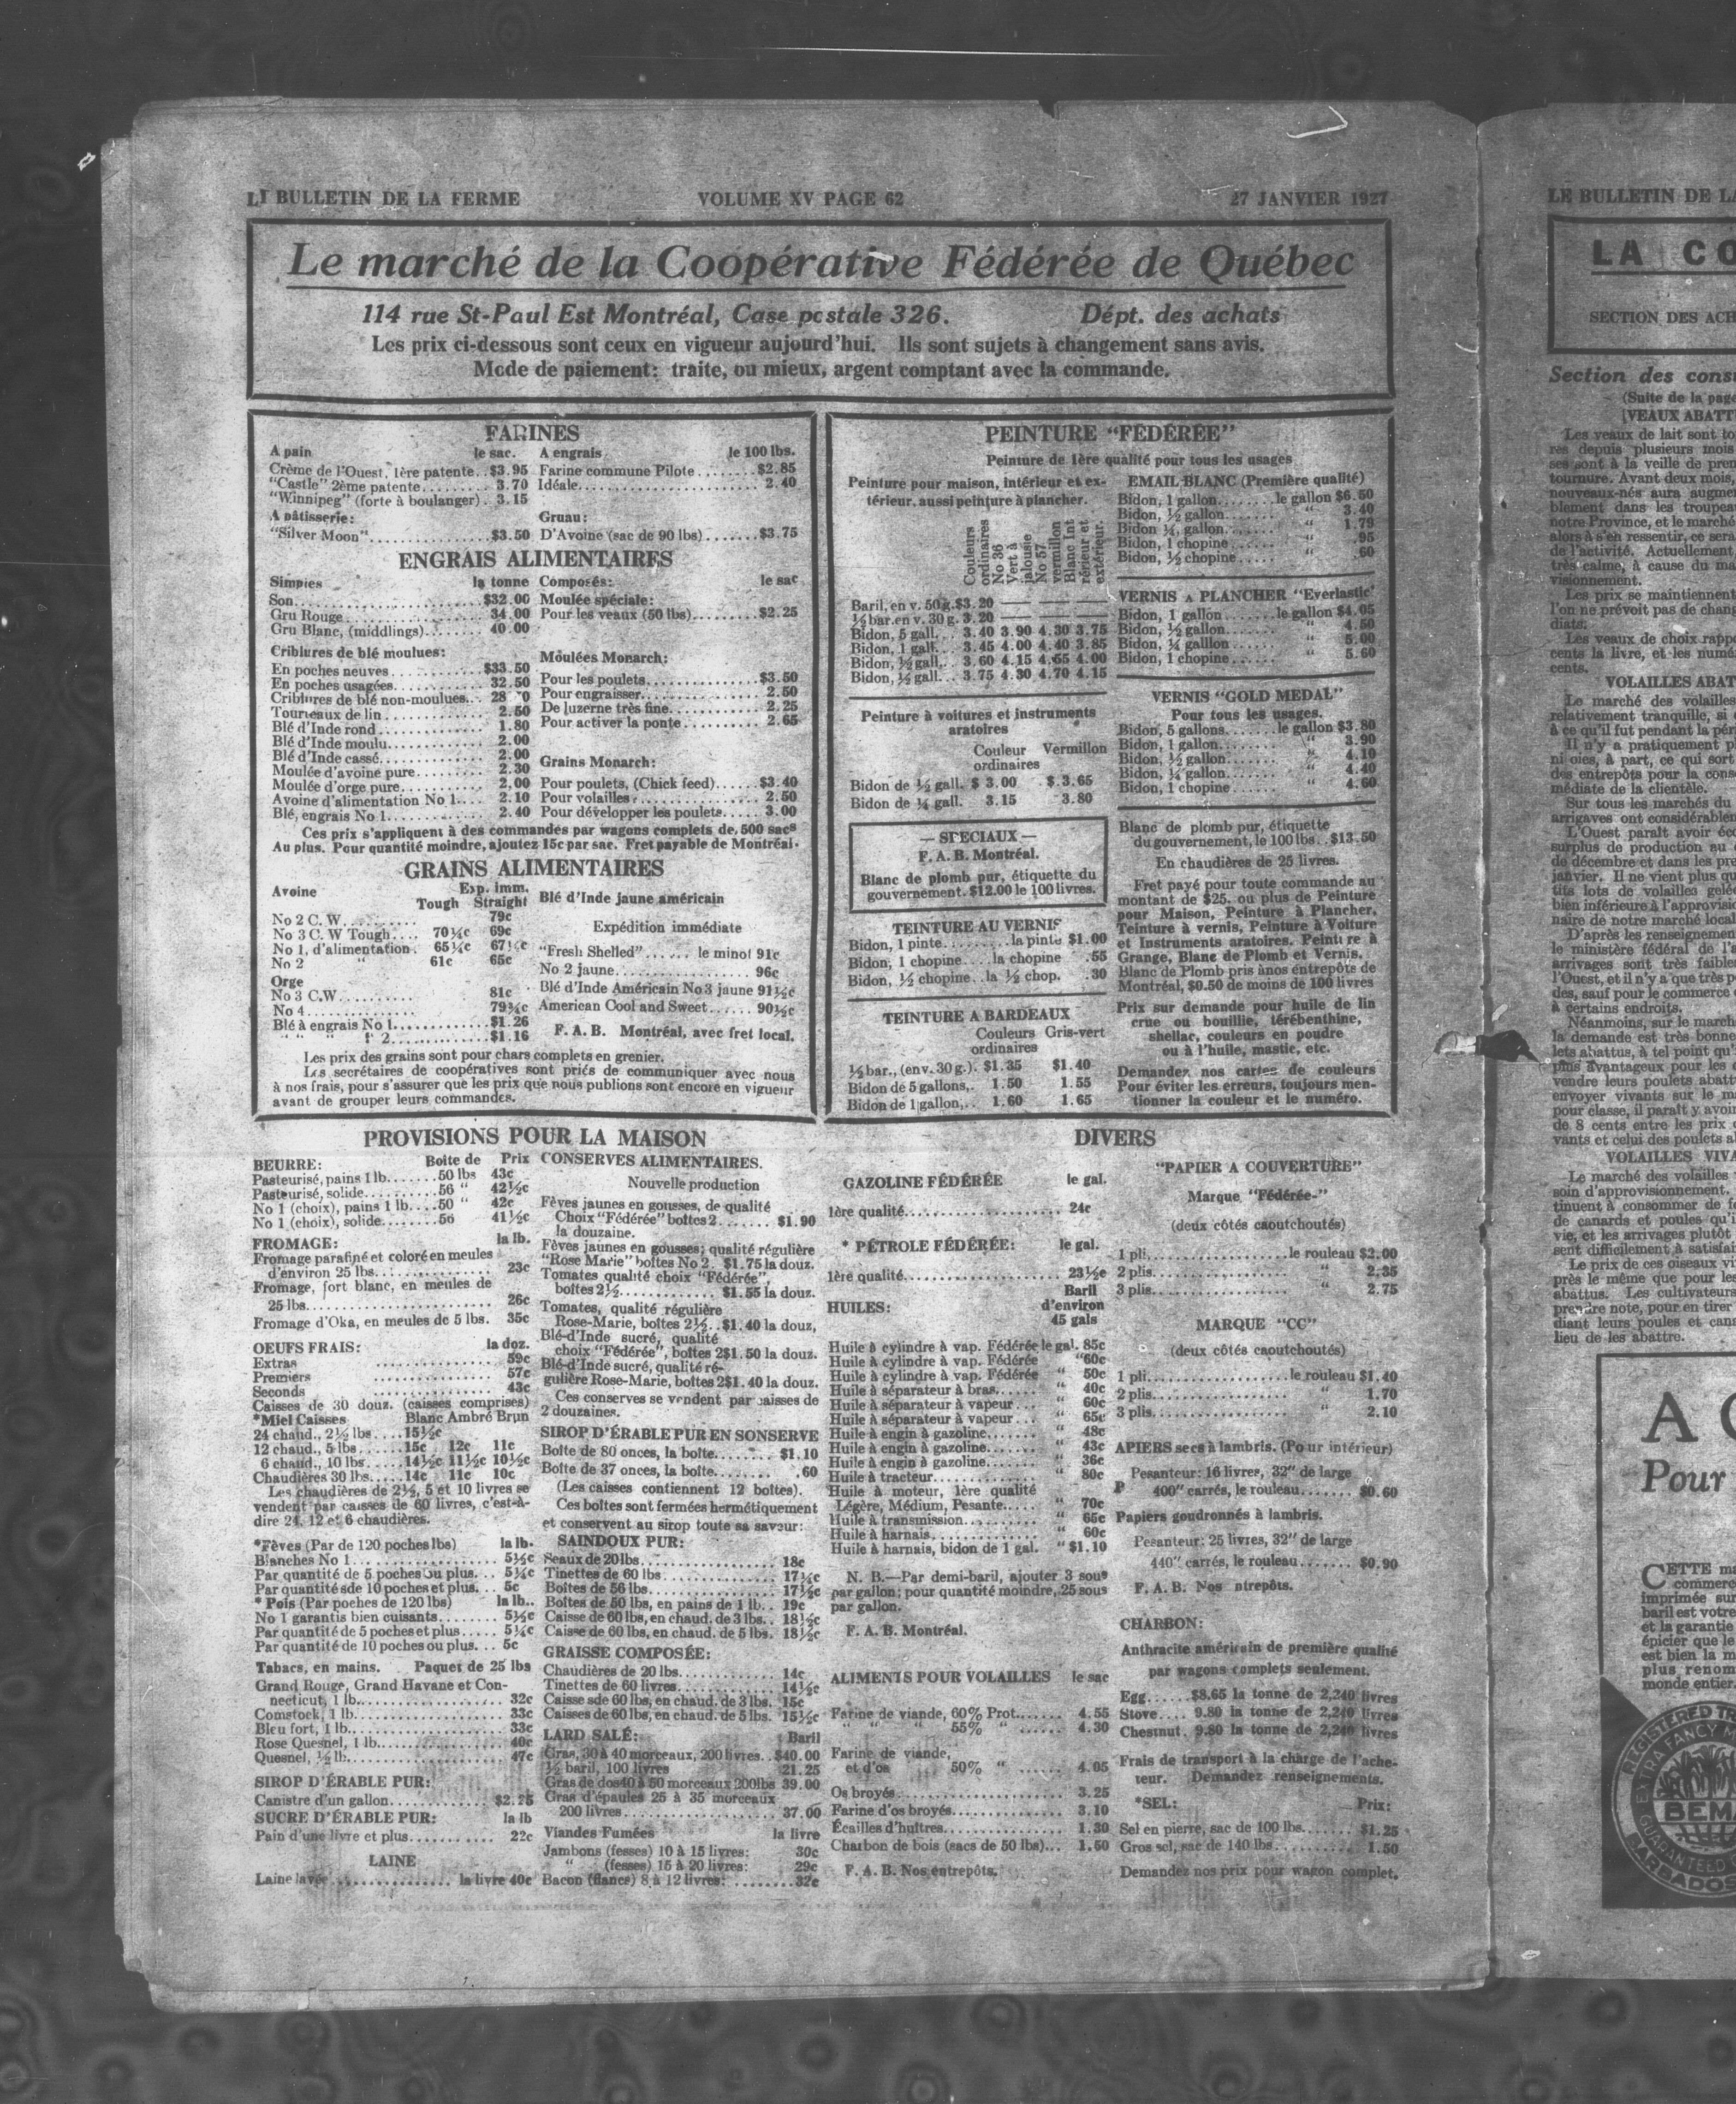 LE BULLETIN DE LA FERME VOLUME XV PAGE 62 27 JANVIER 1927
Le marché de la Coopérative Fédérée de Québec
114 rue St-Paul Est Montréal, Case postale 326. Dépt. des achats
Les prix ci-dessous sont ceux en vigueur aujourd'hui. Ils sont sujets à changement sans avis.
Mode de paiement: traite, ou mieux, argent comptant avec la commande.
FARINES
A pain le sac.
Crème de l'Ouest, 1ère patente..$3.95
"Castle" 2ème patente......... 3.70
"Winnipeg" (forte à boulanger).. 3.15
A pâtisserie:
"Silver Moon"................$3.50
A engrais le 100 lbs.
Farine commune Pilote........$2.85
Idéale........................ 2.40
Gruau:
D'Avoine (sac de 90 lbs).......$3.75
ENGRAIS ALIMENTAIRES
Simples la tonne
Son........................$32.00
Gru Rouge.................. 34.00
Gru Blanc, (middlings)....... 40.00
Criblures de blé moulues:
En poches neuves............$33.50
En poches usagées........... 32.50
Criblures de blé non-moulues..
Tourteaux de lin............. 2.50
Blé d'Inde rond.............. 1.80
Blé d'Inde moulu............ 2.00
Blé d'Inde cassé............. 2.00
Moulée d'avoine pure......... 2.30
Moulée d'orge pure........... 2.00
Avoine d'alimentation No 1.... 2.10
Blé, engrais No 1............. 2.40
Composés: le sac
Moulée spéciale:
Pour les veaux (50 lbs).........$2.25
Moulées Monarch:
Pour les poulets...............$3.50
Pour engraisser............... 2.50
De luzerne très fine............ 2.25
Pour activer la ponte........... 2.65
Grains Monarch:
Pour poulets, (Chick feed)......$3.40
Pour volailles.................. 2.50
Pour développer les poulets..... 3.00
Ces prix s'appliquent à des commandes par wagons complets de, 500 sacs
Au plus. Pour quantité moindre, ajoutez 15c par sac. Fret payable de Montréal.
GRAINS ALIMENTAIRES
Avoine Exp. imm.
Tough Straight
No 2 C. W.......... 79c
No 3 C. W Tough.... 70¼c 69c
No 1, d'alimentation. 65¼c 67½c
No 2 " 61c 65c
Orge
No 3 C.W.......... 81c
No 4.............. 79¾c
Blé à engrais No 1............$1.26
" " " 2..............$1.16
Blé d'Inde jaune américain
Expédition immédiate
"Fresh Shelled"...... le minot 91c
No 2 jaune................. 96c
Blé d'Inde Américain No 3 jaune 91½c
American Cool and Sweet...... 90½c
F. A. B. Montréal, avec fret local.
Les prix des grains sont pour chars complets en grenier.
Les secrétaires de coopératives sont priés de communiquer avec nous
à nos frais, pour s'assurer que les prix que nous publions sont encore en vigueur
avant de grouper leurs commandes.
PEINTURE "FÉDÉRÉE"
Peinture de 1ère qualité pour tous les usages
Peinture pour maison, intérieur et ex-
térieur, aussi peinture à plancher.
Couleurs ordinaires
No 36 Vert à jalousie
No 57 vermillon
Blanc Int rérieur et extérieur.
Baril, en v. 50g.$3.20 — — —
½ bar.en v. 30 g. 3.20 — — —
Bidon, 5 gall... 3.40 3.90 4.30 3.75
Bidon, 1 gall... 3.45 4.00 4.40 3.85
Bidon, ½ gall.. 3.60 4.15 4.65 4.00
Bidon, ¼ gall... 3.75 4.30 4.70 4.15
Peinture à voitures et instruments
aratoires
Couleur Vermillon
ordinaires
Bidon de ½ gall. $ 3.00 $.3.65
Bidon de ¼ gall. 3.15 3.80
— SPECIAUX —
F. A. B. Montréal.
Blanc de plomb pur, étiquette du
gouvernement. $12.00 le 100 livres.
TEINTURE AU VERNIS
Bidon, 1 pinte.........la pinte $1.00
Bidon, 1 chopine....la chopine .55
Bidon, ½ chopine..la ½ chop. .30
TEINTURE A BARDEAUX
Couleurs Gris-vert
ordinaires
½ bar., (env. 30 g.). $1.35 $1.40
Bidon de 5 gallons,. 1.50 1.55
Bidon de 1 gallon,.. 1.60 1.65
EMAIL BLANC (Première qualité)
Bidon, 1 gallon........le gallon $6.50
Bidon, ½ gallon....... " 3.40
Bidon ¼, gallon....... " 1.79
Bidon, 1 chopine...... " .95
Bidon, ½ chopine..... " .60
VERNIS A PLANCHER "Everlastic"
Bidon, 1 gallon.......le gallon $4.05
Bidon, ½ gallon....... " 4.50
Bidon, ¼ galllon...... " 5.00
Bidon, 1 chopine...... " 5.60
VERNIS "GOLD MEDAL"
Pour tous les usages.
Bidon, 5 gallons.......le gallon $3.80
Bidon, 1 gallon........ " 3.90
Bidon, ½ gallon....... " 4.10
Bidon, ¼ gallon....... " 4.40
Bidon, 1 chopine...... " 4.60
Blanc de plomb pur, étiquette
du gouvernement, le 100 lbs..$13.50
En chaudières de 25 livres.
Fret payé pour toute commande au
montant de $25. ou plus de Peinture
pour Maison, Peinture à Plancher,
Teinture à vernis, Peinture à Voiture
et Instruments aratoires. Peinture à
Grange, Blanc de Plomb et Vernis.
Blanc de Plomb pris ànos entrepôts de
Montréal, $0.50 de moins de 100 livres
Prix sur demande pour huile de lin
crue ou bouillie, térébenthine,
shellac, couleurs en poudre
ou à l'huile, mastic, etc.
Demandez nos cartes de couleurs
Pour éviter les erreurs, toujours men-
tionner la couleur et le numéro.
PROVISIONS POUR LA MAISON
BEURRE: Boîte de Prix
Pasteurisé, pains 1 lb.......50 lbs 43c
Pasteurisé, solide..........56 " 42½c
No 1 (choix), pains 1 lb....50 " 42c
No 1 (choix), solide........56 41½c
FROMAGE: la lb.
Fromage parafiné et coloré en meules
d'environ 25 lbs............... 23c
Fromage, fort blanc, en meules de
25 lbs......................... 26c
Fromage d'Oka, en meules de 5 lbs. 35c
OEUFS FRAIS: la doz.
Extras ................ 59c
Premiers ................ 57c
Seconds ................ 43c
Caisses de 30 douz. (caisses comprises)
*Miel Caisses Blanc Ambré Brun
24 chaud., 2½ lbs....15½c
12 chaud., 5 lbs......15c 12c 11c
6 chaud., 10 lbs.....14½c 11½c 10½c
Chaudières 30 lbs....14c 11c 10c
Les chaudières de 2½, 5 et 10 livres se
vendent par caisses de 60 livres, c'est-à-
dire 24, 12 et 6 chaudières.
*Fèves (Par de 120 poches lbs) la lb.
Blanches No 1................. 5½c
Par quantité de 5 poches ou plus... 5¼c
Par quantité sde 10 poches et plus. .. 5c
* Pois (Par poches de 120 lbs) la lb..
No 1 garantis bien cuisants........ 5½c
Par quantité de 5 poches et plus..... 5¼c
Par quantité de 10 poches ou plus... 5c
Tabacs, en mains. Paquet de 25 lbs
Grand Rouge, Grand Havane et Con-
necticut, 1 lb.................. 32c
Comstock, 1 lb.................. 33c
Bleu fort, 1 lb................... 33c
Rose Quesnel, 1 lb............... 40c
Quesnel, ½ lb................... 47c
SIROP D'ÉRABLE PUR:
Canistre d'un gallon............. $2.25
SUCRE D'ÉRABLE PUR: la lb
Pain d'une livre et plus........... 22c
LAINE
Laine lavée................ la livre 40c
CONSERVES ALIMENTAIRES.
Nouvelle production
Fèves jaunes en gousses, de qualité
Choix "Fédérée" boîtes 2....... $1.90
la douzaine.
Fèves jaunes en gousses; qualité régulière
"Rose Marie" boîtes No 2. $1.75 la douz.
Tomates qualité choix "Fédérée",
boîtes 2½............ $1.55 la douz.
Tomates, qualité régulière
Rose-Marie, boîtes 2½..$1.40 la douz,
Blé-d'Inde sucré, qualité
choix "Fédérée", boîtes 2$1.50 la douz.
Blé-d'Inde sucré, qualité ré-
gulière Rose-Marie, boîtes 2$1.40 la douz.
Ces conserves se vendent par caisses de
2 douzaines.
SIROP D'ÉRABLE PUR EN SONSERVE
Boîte de 80 onces, la boîte........ $1.10
Boîte de 37 onces, la boîte........ .60
(Les caisses contiennent 12 boîtes).
Ces boîtes sont fermées hermétiquement
et conservent au sirop toute sa saveur:
SAINDOUX PUR:
Seaux de 20 lbs................... 18c
Tinettes de 60 lbs................ 17¼c
Boîtes de 56 lbs.................. 17½c
Boîtes de 50 lbs, en pains de 1 lb.. 19c
Caisse de 60 lbs, en chaud. de 3 lbs.. 18½c
Caisse de 60 lbs, en chaud. de 5 lbs. 18½c
GRAISSE COMPOSÉE:
Chaudières de 20 lbs............. 14c
Tinettes de 60 livres.............. 14½c
Caisse sde 60 lbs, en chaud. de 3 lbs. 15c
Caisses de 60 lbs, en chaud. de 5 lbs. 15½c
LARD SALÉ: Baril
Gras, 30 à 40 morceaux, 200 livres..$40.00
½ baril, 100 livres 21.25
Gras de dos40 à 50 morceaux 200lbs 39.00
Gras d'épaules 25 à 35 morceaux
200 livres..................... 37.00
Viandes Fumées la livre
Jambons (fesses) 10 à 15 livres: 30c
" (fesses) 15 à 20 livres: 29c
Bacon (flancs) 8 à 12 livres: ........32c
DIVERS
GAZOLINE FÉDÉRÉE le gal.
1ère qualité...................... 24c
* PÉTROLE FÉDÉRÉE: le gal.
1ère qualité...................... 23½c
HUILES: Baril
d'environ
45 gals
Huile à cylindre à vap. Fédérée le gal. 85c
Huile à cylindre à vap. Fédérée "60c
Huile à cylindre à vap. Fédérée " 50c
Huile à séparateur à bras...... " 40c
Huile à séparateur à vapeur... " 60c
Huile à séparateur à vapeur... " 65c
Huile à engin à gazoline....... " 48c
Huile à engin à gazoline....... " 43c
Huile à engin à gazoline....... " 36c
Huile à tracteur............... " 80c
Huile à moteur, 1ère qualité
Légère, Médium, Pesante..... " 70c
Huile à transmission........... " 65c
Huile à harnais................ " 60c
Huile à harnais, bidon de 1 gal. " $1.10
N. B.—Par demi-baril, ajouter 3 sous
par gallon; pour quantité moindre, 25 sous
par gallon.
F. A. B. Montréal.
ALIMENTS POUR VOLAILLES le sac
Farine de viande, 60% Prot....... 4.55
" " " 55% " ...... 4.30
Farine de viande,
et d'os 50% " ...... 4.05
Os broyés....................... 3.25
Farine d'os broyés................ 3.10
Écailles d'huîtres................. 1.30
Charbon de bois (sacs de 50 lbs)... 1.50
F. A. B. Nos entrepôts.
"PAPIER A COUVERTURE"
Marque "Fédérée-"
(deux côtés caoutchoutés)
1 pli....................le rouleau $2.00
2 plis................... " 2.35
3 plis................... " 2.75
MARQUE "CC"
(deux côtés caoutchoutés)
1 pli....................le rouleau $1.40
2 plis................... " 1.70
3 plis................... " 2.10
APIERS secs à lambris. (Pour intérieur)
Pesanteur: 16 livres, 32" de large
P 400" carrés, le rouleau....... $0.60
Papiers goudronnés à lambris.
Pesanteur: 25 livres, 32" de large
440" carrés, le rouleau....... $0.90
F. A. B. Nos ntrepôts.
CHARBON:
Anthracite américain de première qualité
par wagons complets seulement.
Egg...... $8.65 la tonne de 2,240 livres
Stove.... 9.80 la tonne de 2,240 livres
Chestnut. 9.80 la tonne de 2,240 livres
Frais de transport à la charge de l'ache-
teur. Demandez renseignements.
*SEL: Prix:
Sel en pierre, sac de 100 lbs....... $1.25
Gros sel, sac de 140 lbs.......... 1.50
Demandez nos prix pour wagon complet.
LE BULLETIN DE LA
LA CO
SECTION DES ACH
Section des cons
(Suite de la page
VEAUX ABATT
Les veaux de lait sont to
res depuis plusieurs mois
ses sont à la veille de pren
tournure. Avant deux mois,
nouveaux-nés aura augme
blement dans les troupea
notre Province, et le marché
alors à s'en ressentir, ce sera
de l'activité. Actuellement,
très calme, à cause du ma
visionnement.
Les prix se maintiennent
l'on ne prévoit pas de chang
diats.
Les veaux de choix rapp
cents la livre, et les numé
cents.
VOLAILLES ABAT
Le marché des volailles
relativement tranquille, si
à ce qu'il fut pendant la pér
Il n'y a pratiquement pl
ni oies, à part, ce qui sort
des entrepôts pour la cons
médiate de la clientèle.
Sur tous les marchés du
arrigaves ont considérablen
L'Ouest paraît avoir éco
surplus de production au
de décembre et dans les pre
janvier. Il ne vient plus qu
tits lots de volailles gelé
bien inférieure à l'approvisio
naire de notre marché local
D'après les renseignemen
le ministère fédéral de l'
arrivages sont très faibles
l'Ouest, et il n'y a que très p
des, sauf pour le commerce
à certains endroits.
Néanmoins, sur le march
la demande est très bonne
lets abattus, à tel point qu'
plus avantageux pour les
vendre leurs poulets abatt
envoyer vivants sur le m
pour classe, il paraît y avoir
de 8 cents entre les prix
vants et celui des poulets a
VOLAILLES VIVA
Le marché des volailles
soin d'approvisionnement.
tinuent à consommer de f
de canards et poules qu'i
vie, et les arrivages plutôt
sent difficilement à satisfai
Le prix de ces oiseaux vi
près le même que pour les
abattus. Les cultivateurs
prendre note, pour en tirer
diant leurs poules et cana
lieu de les abattre.
A
Pour
CETTE ma
commerc
imprimée sur
baril est votre
et la garantie
épicier que le
est bien la m
plus renom
monde entier.
REGISTERED TR
EXTRA FANCY
BEM
GUARANTEED
BARBADOS